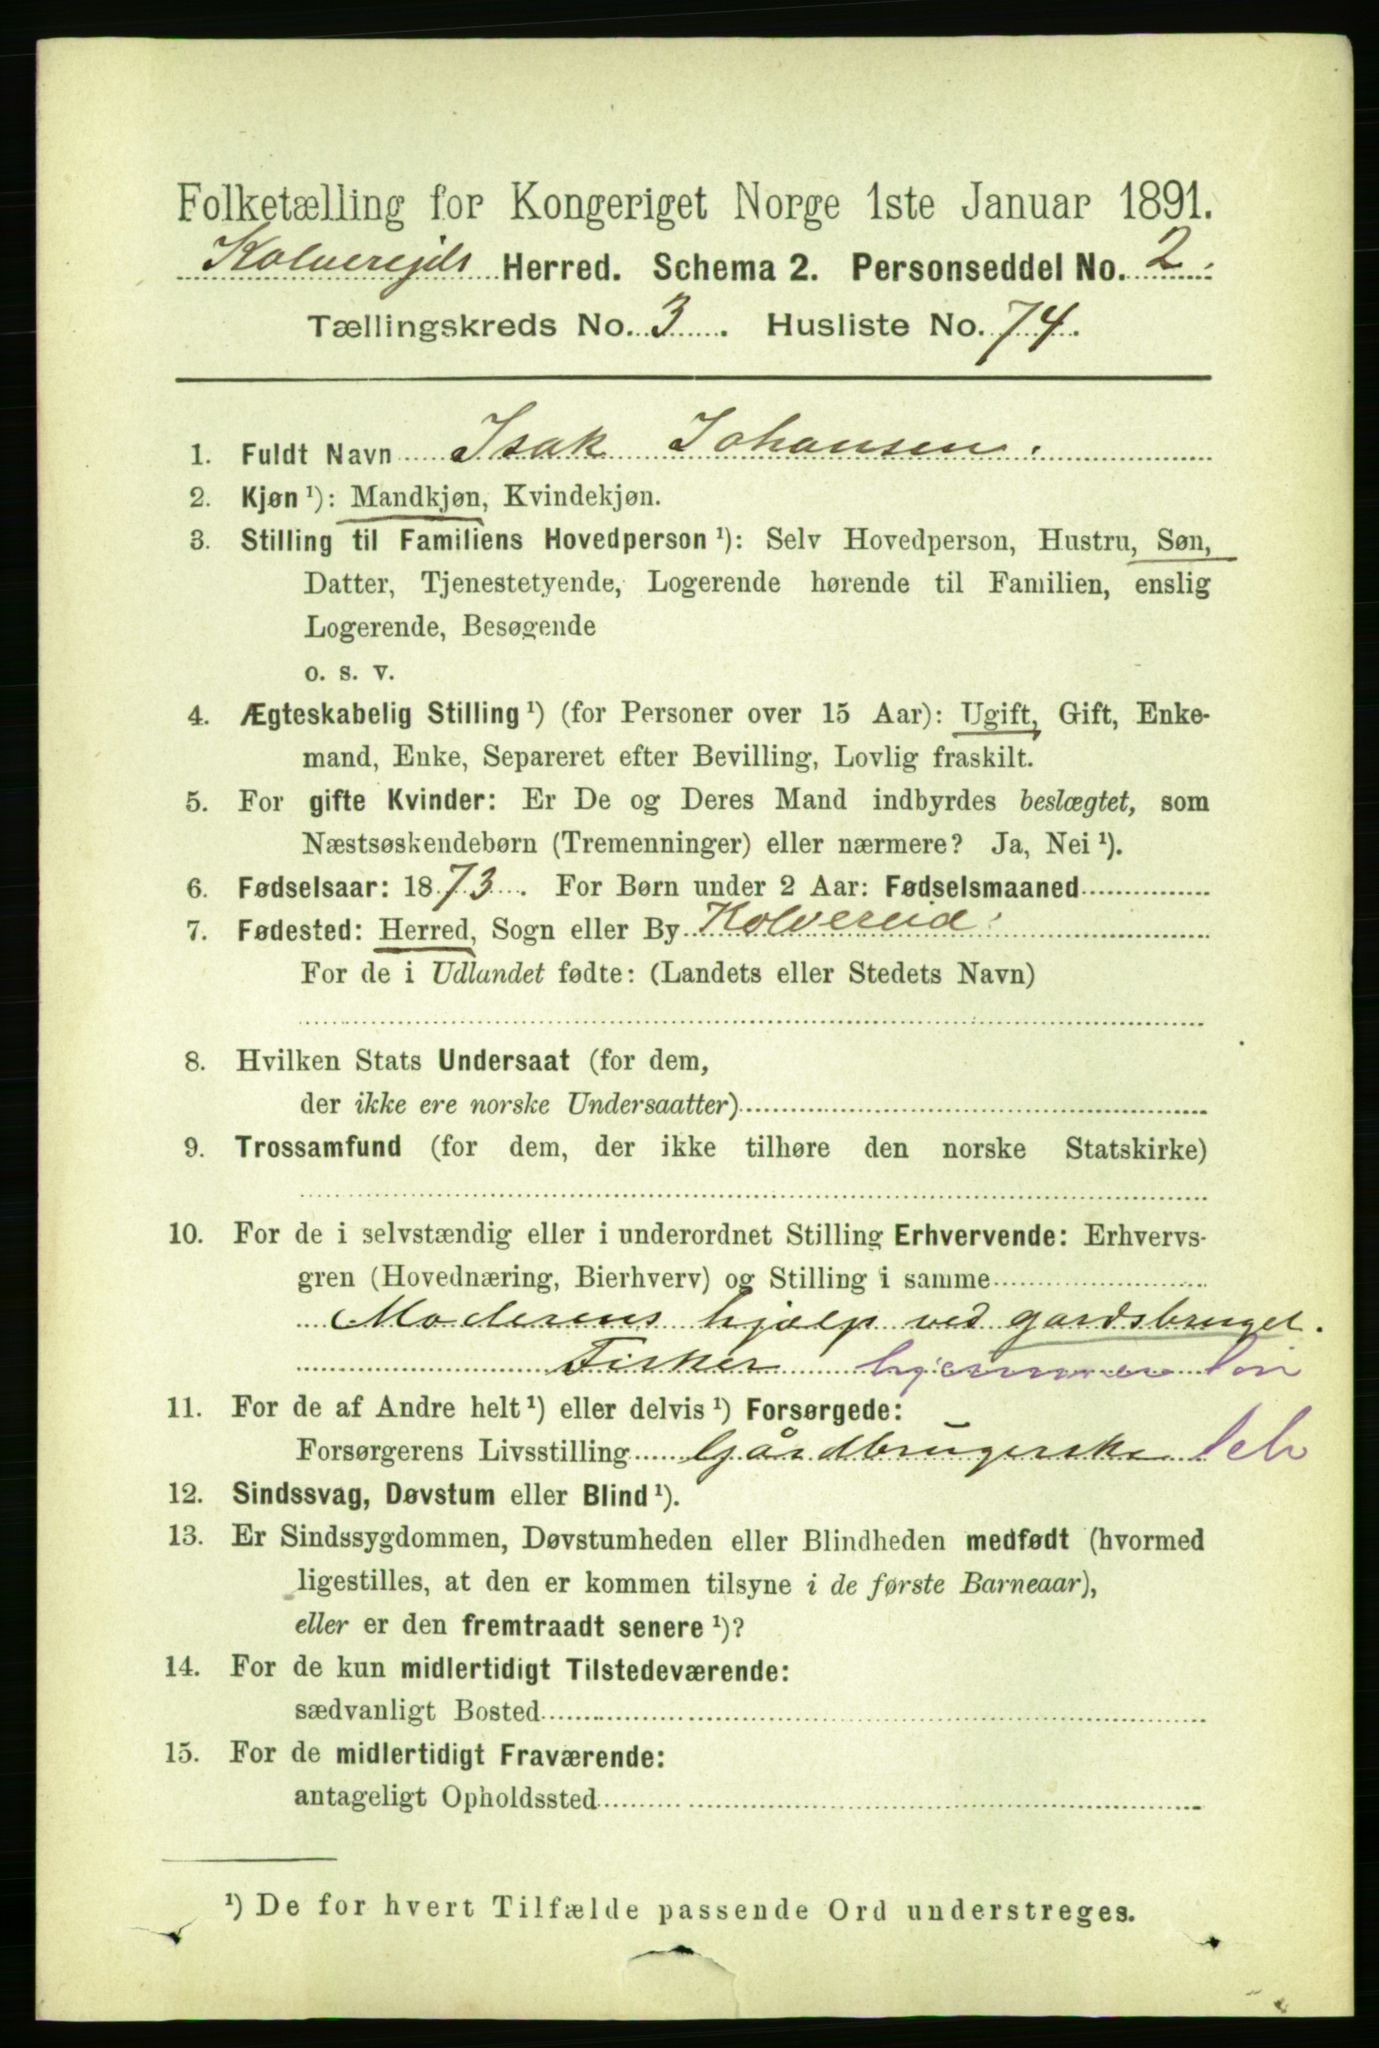 Folketælling for Kongeriget Norge 1ste Januar 1891.
Kolverejds Herred. Schema 2. Personseddel No. 2.
Tællingskreds No. 3. Husliste No. 74.
1. Fuldt Navn Isak Johansen.
2. Kjøn ¹): Mandkjøn, Kvindekjøn.
3. Stilling til Familiens Hovedperson ¹): Selv Hovedperson, Hustru, Søn,
Datter, Tjenestetyende, Logerende hørende til Familien, enslig
Logerende, Besøgende
o. s. v.
4. Ægteskabelig Stilling ¹) (for Personer over 15 Aar): Ugift, Gift, Enke-
mand, Enke, Separeret efter Bevilling, Lovlig fraskilt.
5. For gifte Kvinder: Er De og Deres Mand indbyrdes beslægtet, som
Næstsøskendebørn (Tremenninger) eller nærmere? Ja, Nei ¹).
6. Fødselsaar: 1873. For Børn under 2 Aar: Fødselsmaaned
7. Fødested: Herred, Sogn eller By Kolvereid.
For de i Udlandet fødte: (Landets eller Stedets Navn)
8. Hvilken Stats Undersaat (for dem,
der ikke ere norske Undersaatter)
9. Trossamfund (for dem, der ikke tilhøre den norske Statskirke)
10. For de i selvstændig eller i underordnet Stilling Erhvervende: Erhvervs-
gren (Hovednæring, Bierhverv) og Stilling i samme
Moderens hjælp ved gardsbruget.
Fisker
11. For de af Andre helt ¹) eller delvis ¹) Forsørgede:
Forsørgerens Livsstilling Gårdbrugerske
12. Sindssvag, Døvstum eller Blind ¹).
13. Er Sindssygdommen, Døvstumheden eller Blindheden medfødt (hvormed
ligestilles, at den er kommen tilsyne i de første Barneaar),
eller er den fremtraadt senere ¹)?
14. For de kun midlertidigt Tilstedeværende:
sædvanligt Bosted
15. For de midlertidigt Fraværende:
antageligt Opholdssted
¹) De for hvert Tilfælde passende Ord understreges.